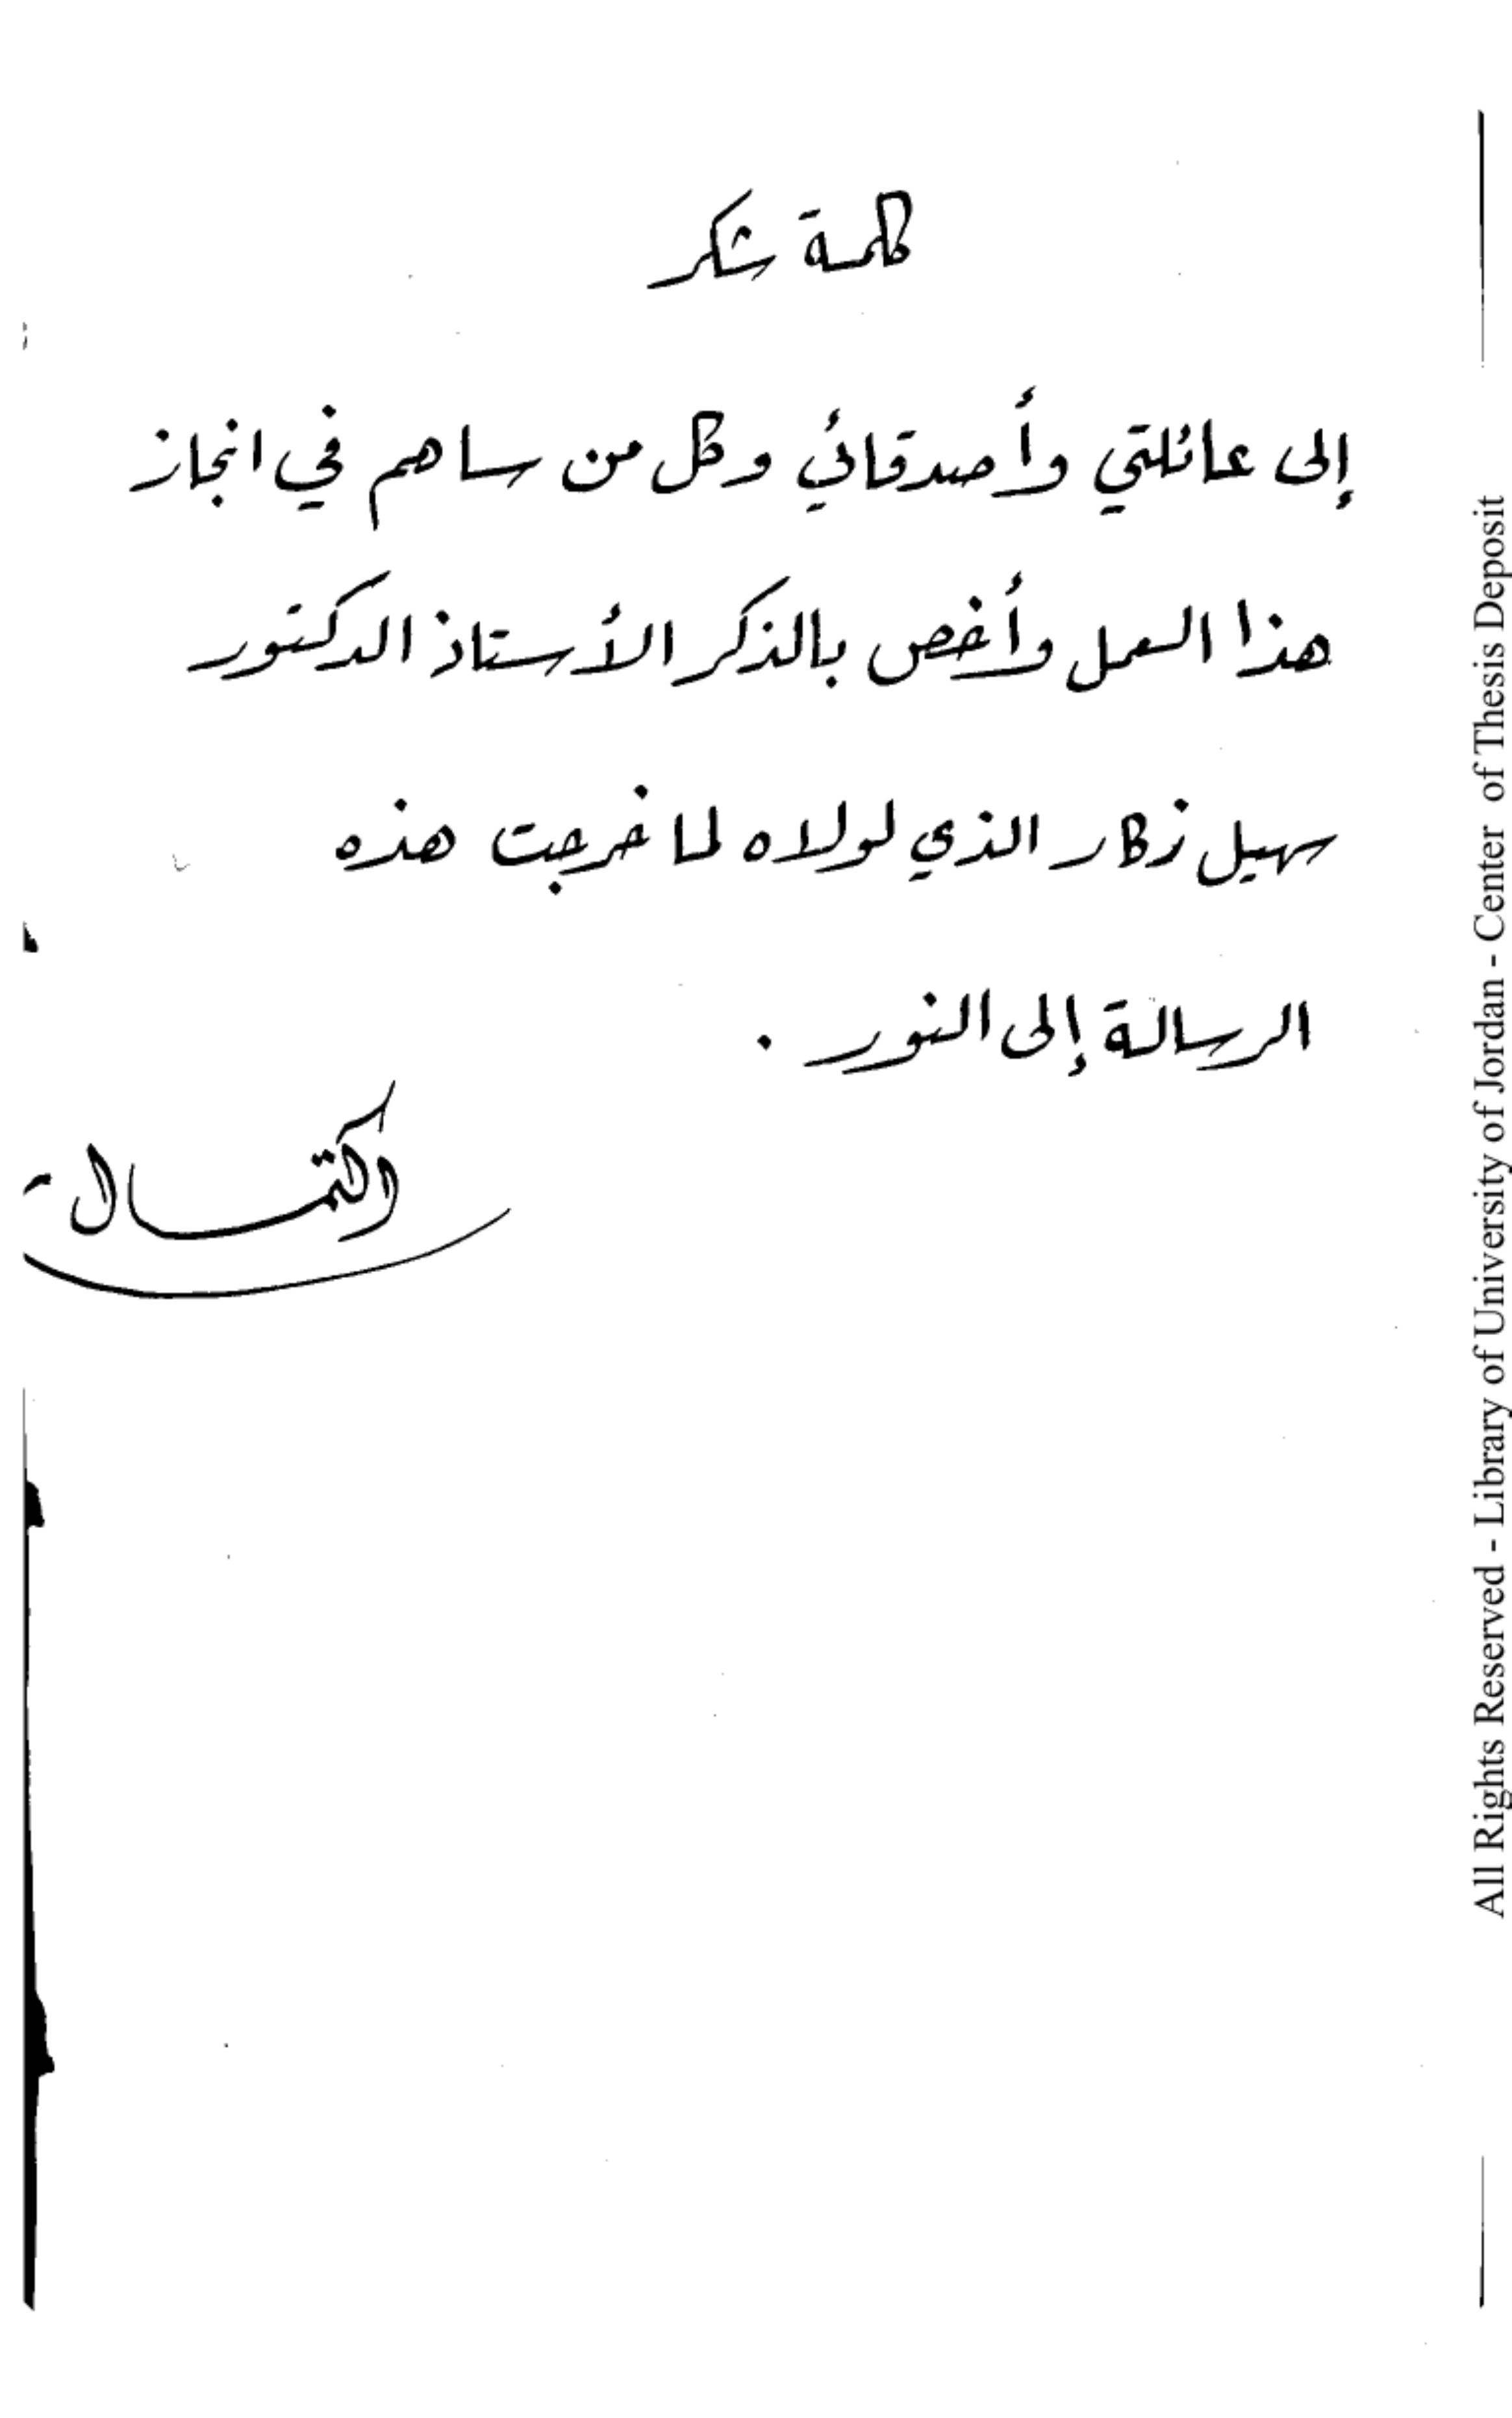 كلمة شكر
إلى عائلتي وأصدقائي وكل من ساهم في انجاز
هذا العمل وأخص بالذكر الأستاذ الدكتور
سهيل زكار الذي لولاه لما خرجت هذه
الرسالة إلى النور .
All Rights Reserved - Library of University of Jordan - Center of Thesis Deposit